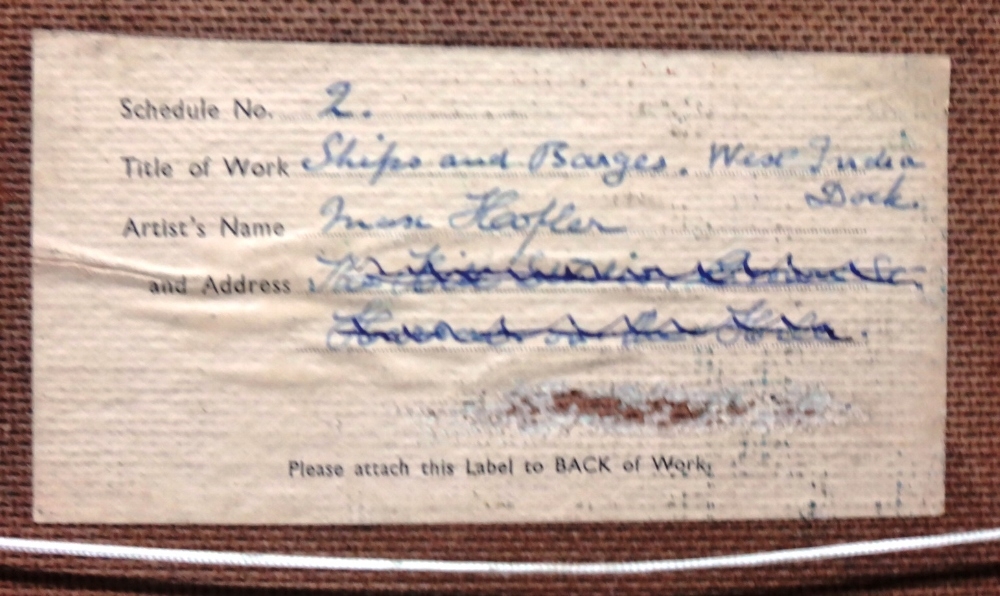 Schedule No. 2.
Title of Work Ships and Barges. West India
Dock.
Artist's Name Max Hofler
and Address The
Harrow on the Hill.
Please attach this Label to BACK of Work.